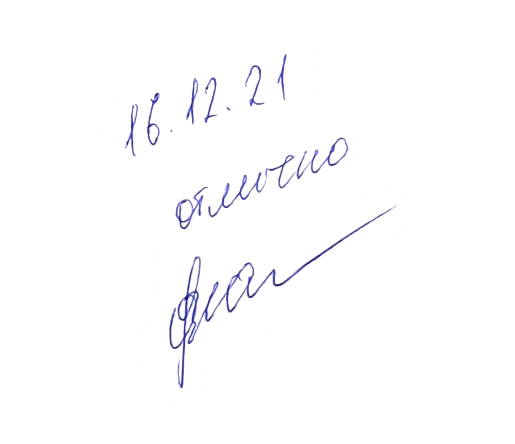 16.12.21
отлично